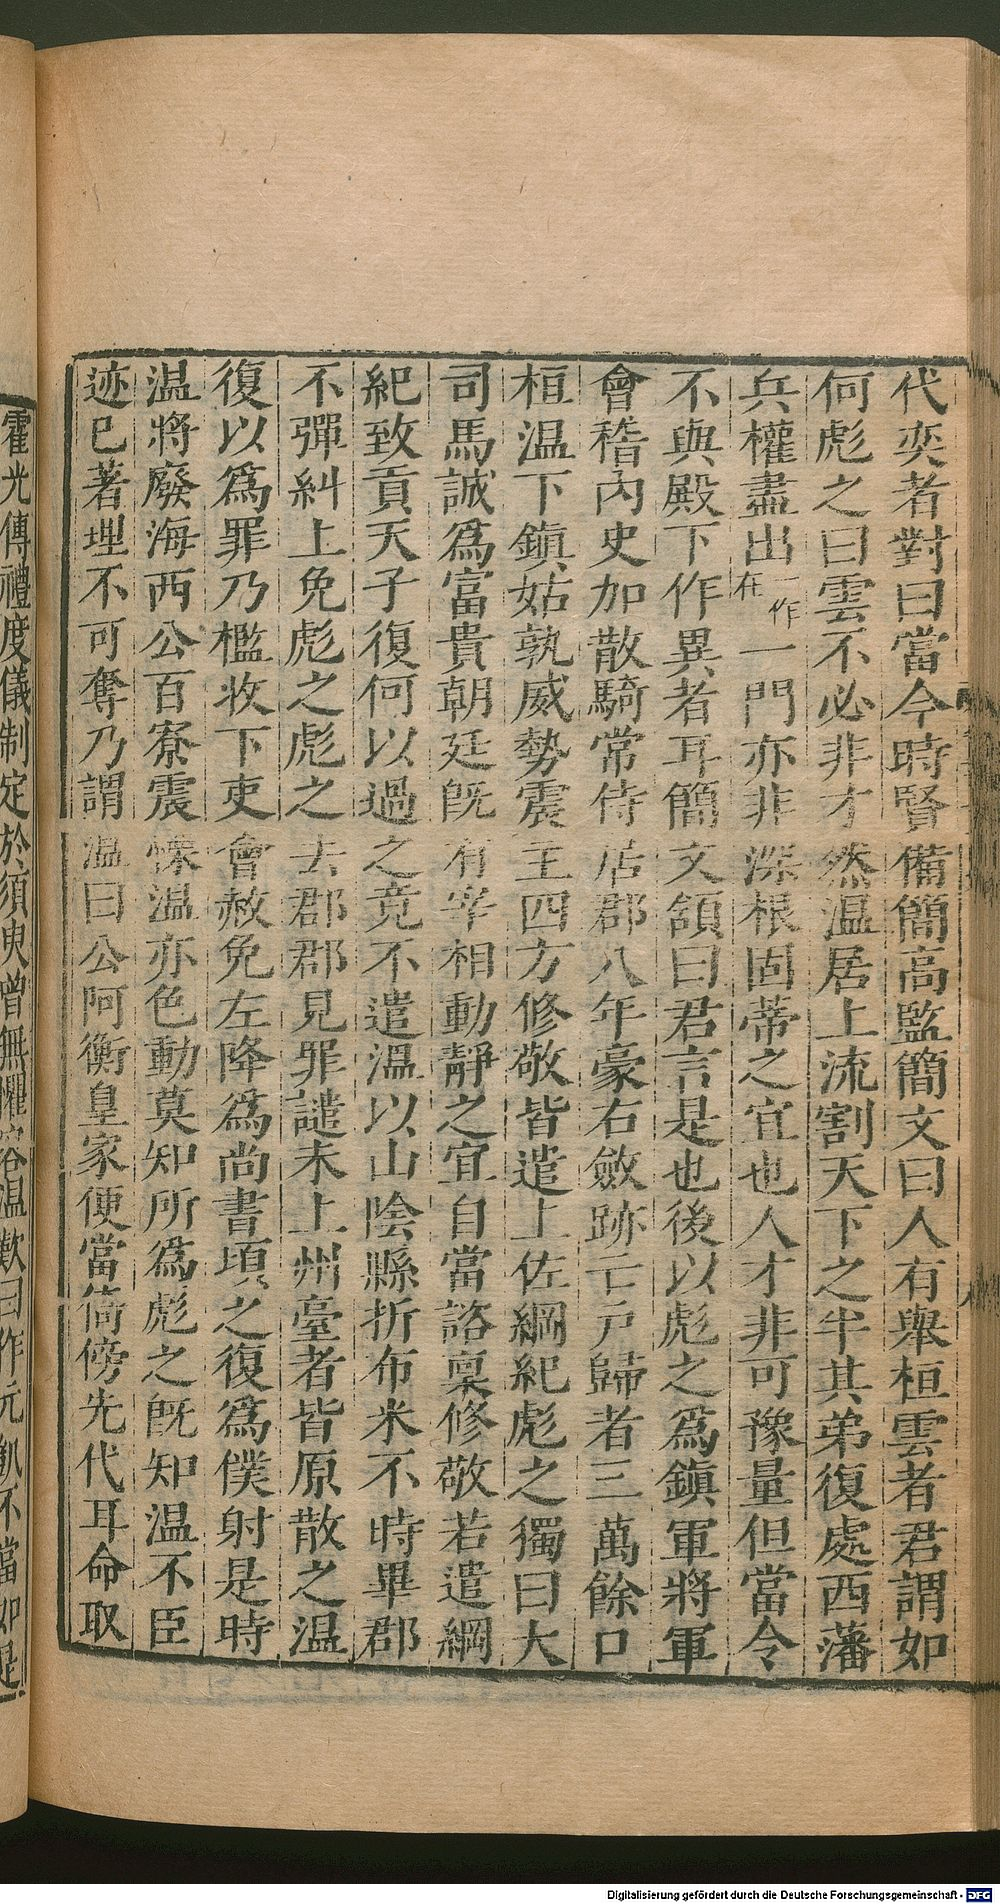 代奕者對曰當今時賢備簡高監簡文曰人有舉桓雲者君謂如
何彪之曰雲不必非才然温居上流割天下之半其弟復處西藩
兵權盡出一作在一門亦非深根固蒂之宜也人才非可豫量但當令
不與殿下作異者耳簡文頷曰君言是也後以彪之爲鎮軍將軍
會稽內史加散騎常侍居郡八年豪右斂跡亡戶歸者三萬餘口
桓温下鎮姑孰威勢震主四方修敬皆遣上佐綱紀彪之獨曰大
司馬誠爲富貴朝廷既有宰相動靜之宜自當諮稟修敬若遣綱
紀致貢天子復何以過之竟不遣温以山陰縣折布米不時畢郡
不彈糾上免彪之彪之去郡郡見罪譴未上州臺者皆原散之温
復以爲罪乃檻收下吏會赦免左降爲尚書頃之復爲僕射是時
温將廢海西公百寮震慄温亦色動莫知所爲彪之既知温不臣
迹已著理不可奪乃謂温曰公阿衡皇家便當倚傍先代耳命取
霍光傳禮度儀制定於須臾曾無懼容温歎曰作元凱不當如是
Digitalisierung gefördert durch die Deutsche Forschungsgemeinschaft - DFG